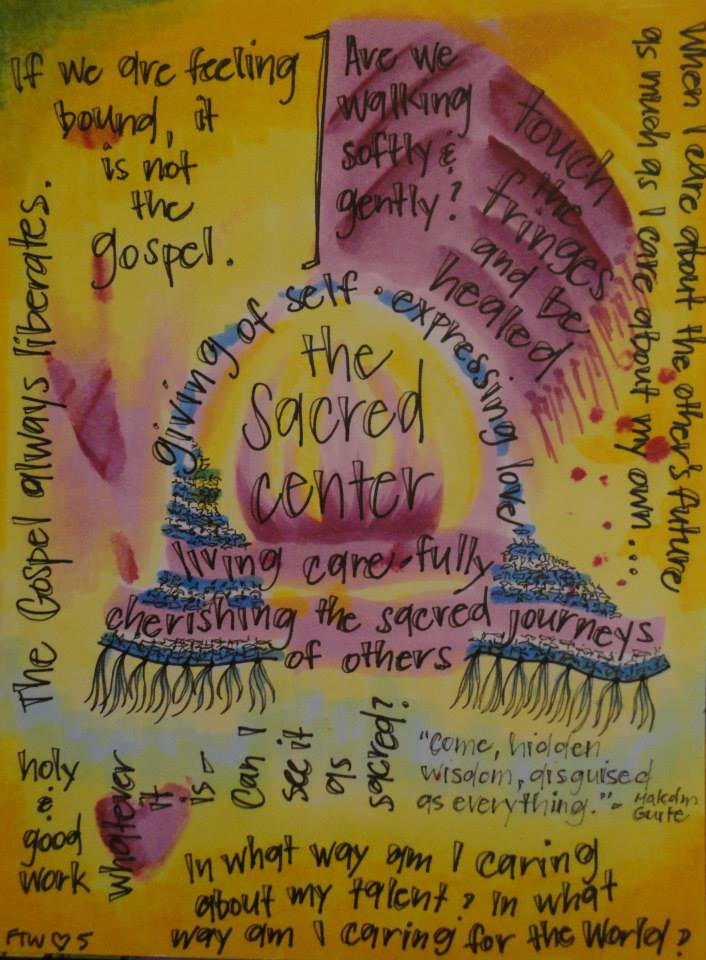 If we are feeling
bound, it
is not
the
gospel.
Are we
walking
softly &
gently?
touch
the
fringes
and be
healed
When I care about the other's future
as much as I care about my own...
The Gospel always liberates.
giving of self · expressing love
the
Sacred
center
living care-fully
cherishing the sacred journeys
of others
holy
&
good
work
whatever
it
is -
Can I
see it
as
sacred?
"Come, hidden
wisdom, disguised
as everything." - Malcolm
Guite
In what way am I caring
about my talent? In what
way am I caring for the World?
FTW ♡ 5